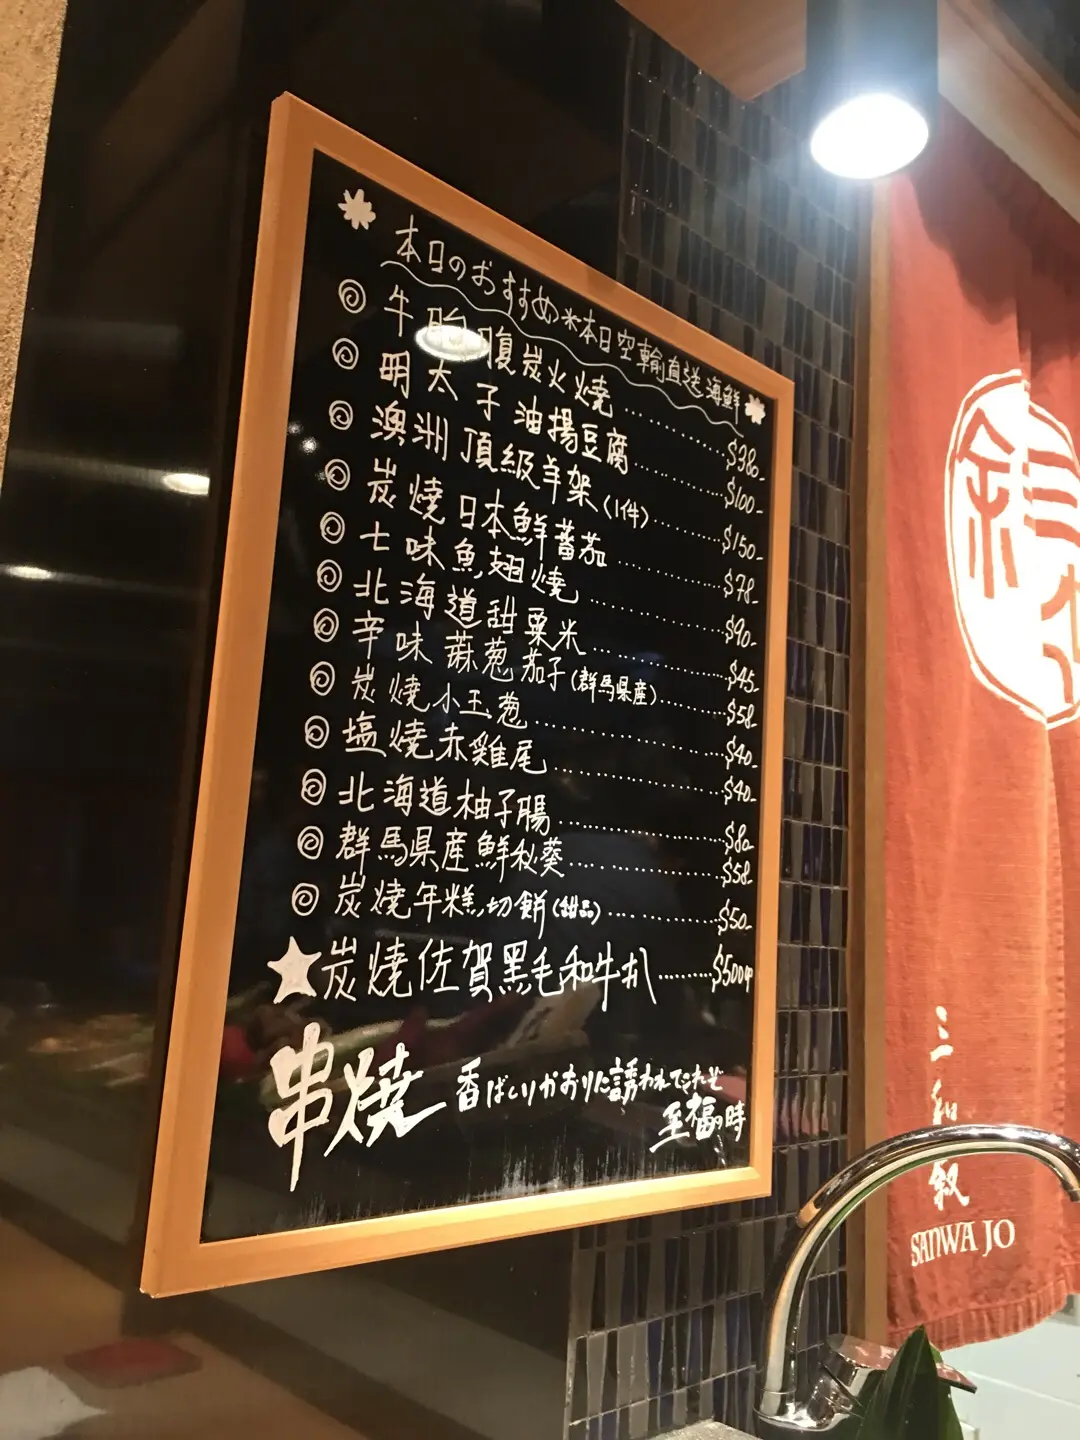 本日のおすすめ*本日空輸直送海鮮
牛胸腹炭火燒 ........ $380-
明太子油揚豆腐 ........ $100-
澳洲頂級羊架(1件) ........ $150-
炭燒日本鮮蕃茄 ........ $78-
七味魚翅燒 ........ $90-
北海道甜粟米 ........ $45-
辛味蒜葱茄子(群馬県産) ........ $58-
炭燒小玉葱 ........ $40-
塩燒赤雞尾 ........ $40-
北海道柚子腸 ........ $80-
群馬県産鮮秋葵 ........ $58-
炭燒年糕切餅(甜品) ........ $50-
★炭燒佐賀黑毛和牛扒 ........ $500
串燒
香ばしいかおりに誘われてこれぞ
至福の時
三和叙
SANWA JO